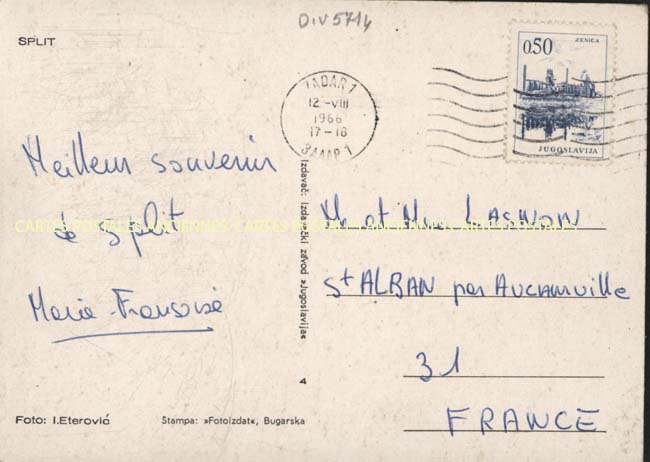 DIV 5714
SPLIT
ZADAR 1
12-VIII
1966
17-18
ЗАДАР 1
0.50
ZENICA
JUGOSLAVIJA
Meilleur souvenir
de Split
Marie-Françoise
Mr et Mme
St ALBAN par AUCAMVILLE
31
FRANCE
Izdavač: Izdavački zavod »Jugoslavija«
4
Foto: I.Eterović
Štampa: »Fotoizdat«, Bugarska
CARTES POSTALES ANCIENNES CARTES POSTALES ANCIENNES CARTES POSTALES